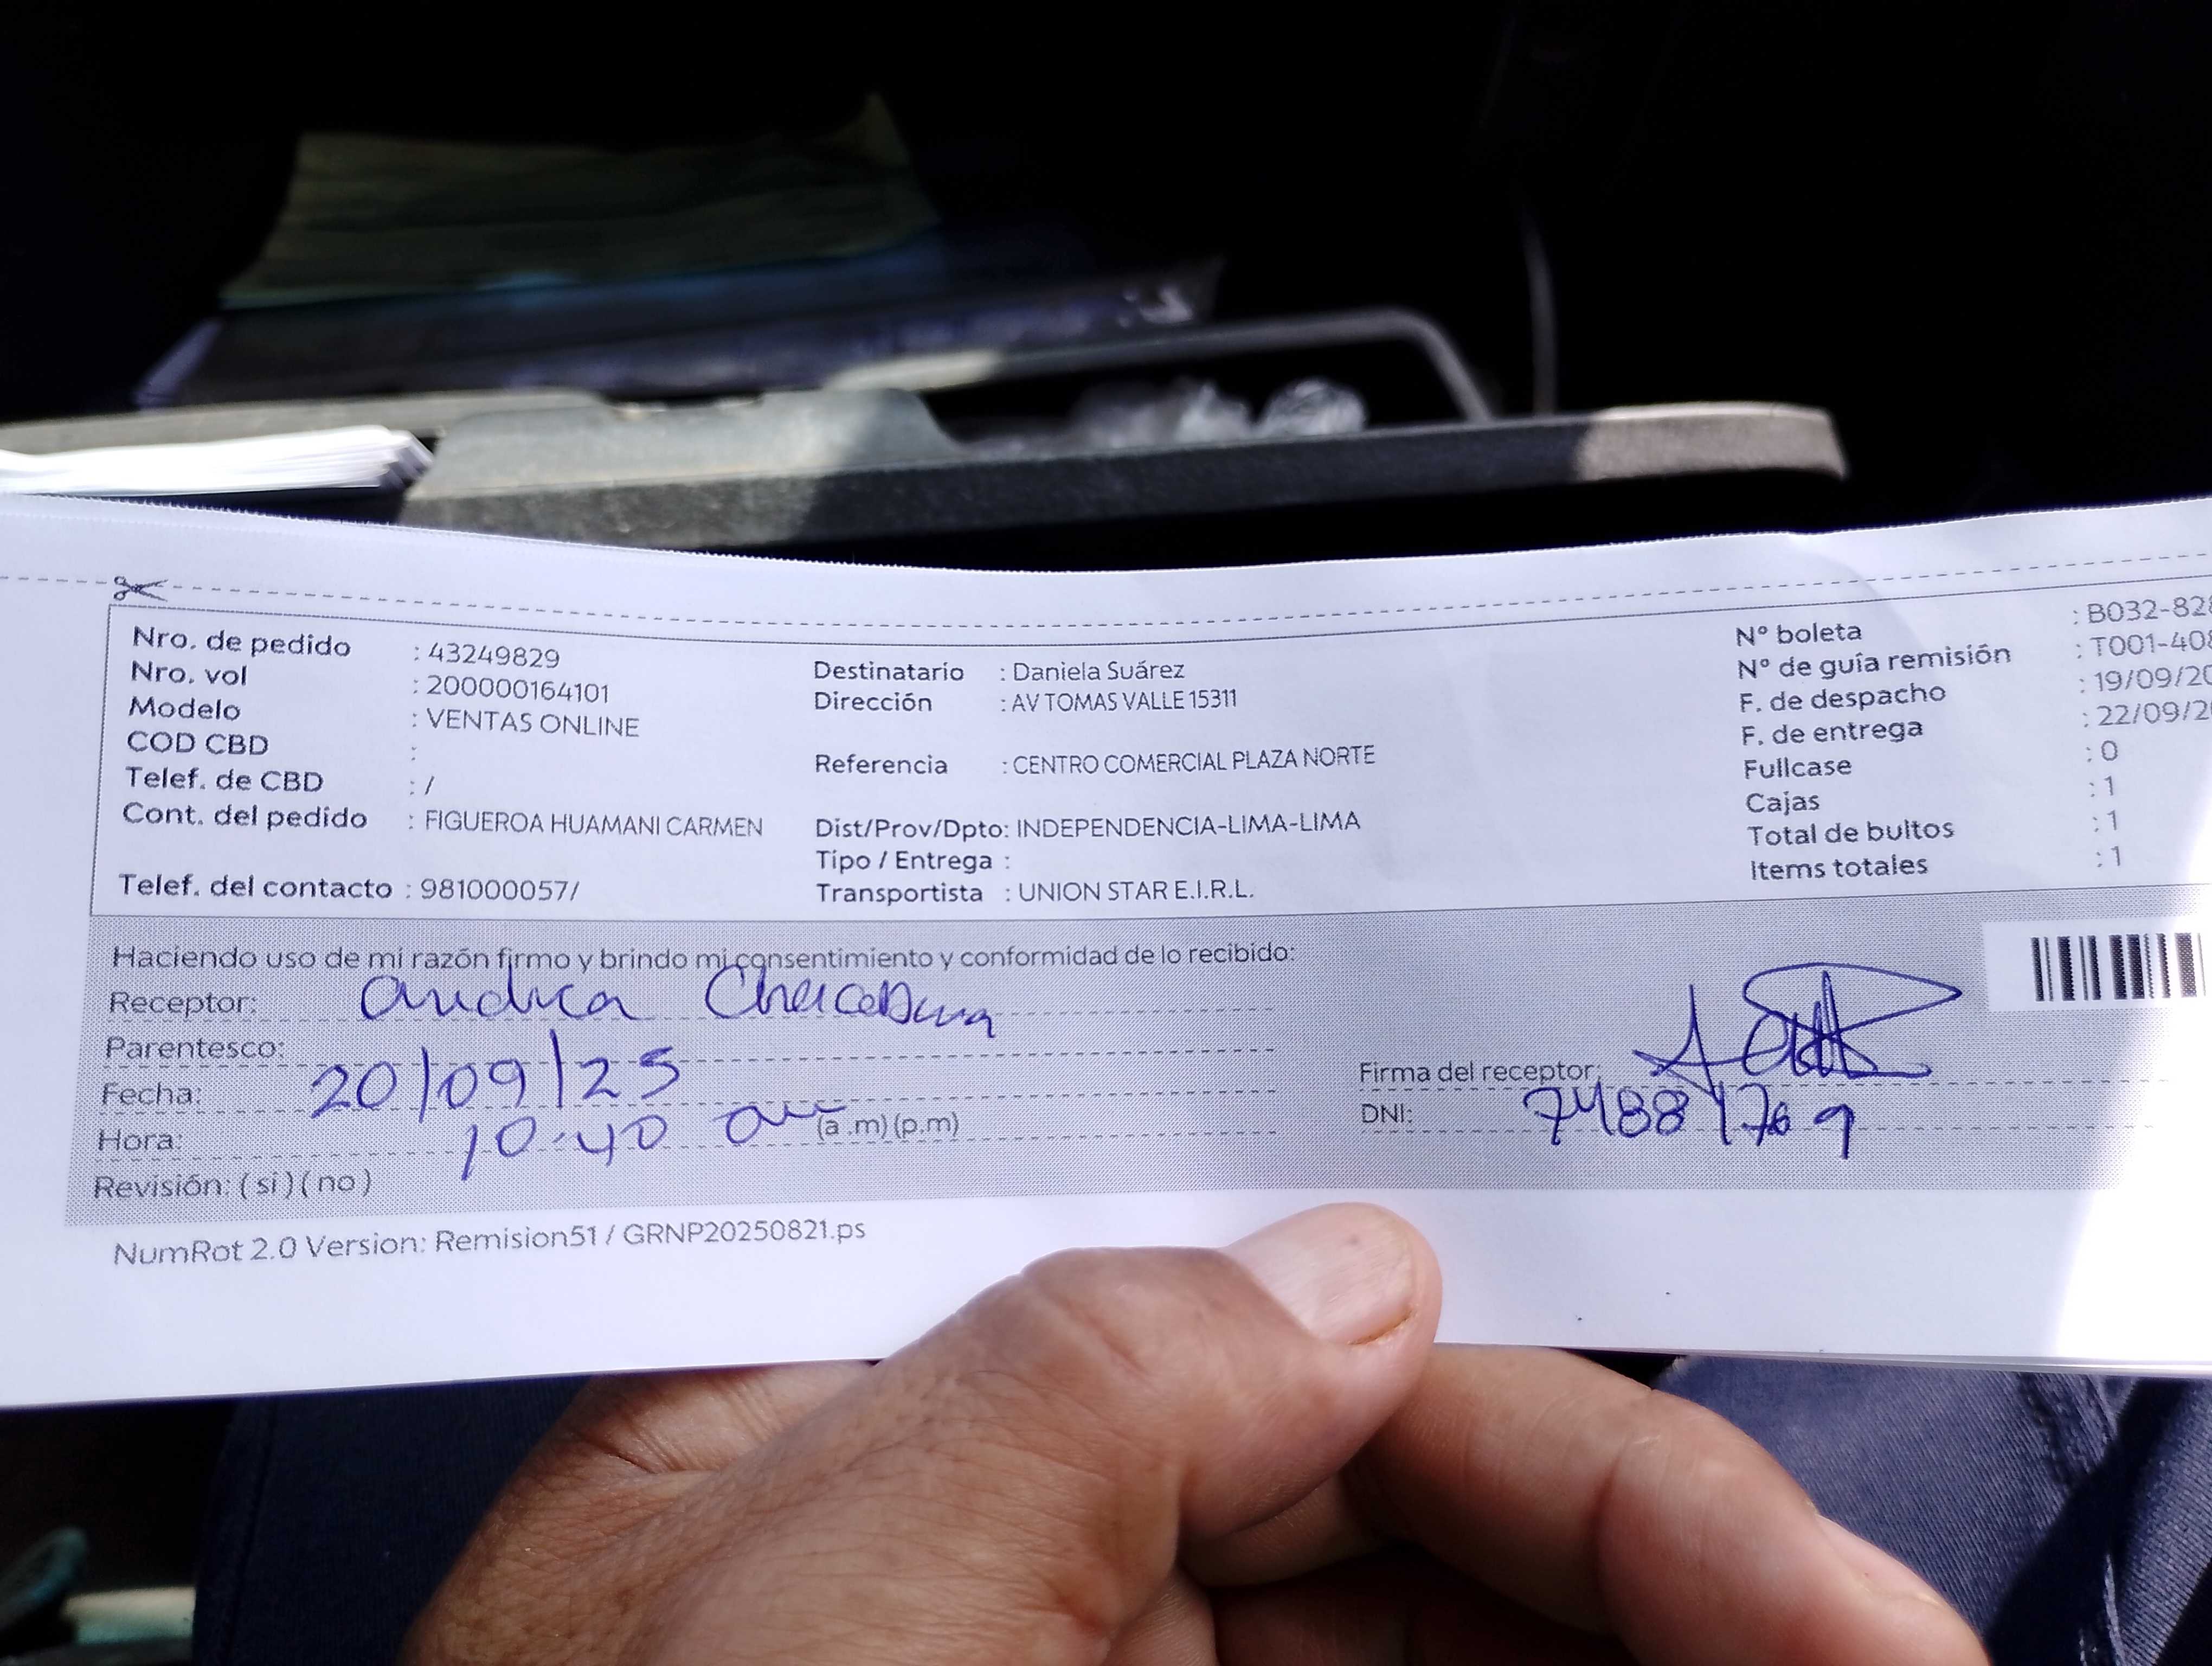 Nro. de pedido : 43249829
Nro. vol : 200000164101
Modelo : VENTAS ONLINE
COD CBD :
Telef. de CBD : /
Cont. del pedido : FIGUEROA HUAMANI CARMEN
Telef. del contacto : 981000057/
Destinatario : Daniela Suárez
Dirección : AV TOMAS VALLE 15311
Referencia : CENTRO COMERCIAL PLAZA NORTE
Dist/Prov/Dpto: INDEPENDENCIA-LIMA-LIMA
Tipo / Entrega :
Transportista : UNION STAR E.I.R.L.
Nº boleta : B032-82
Nº de guía remisión : T001-408
F. de despacho : 19/09/20
F. de entrega : 22/09/2
Fullcase : 0
Cajas : 1
Total de bultos : 1
Items totales : 1
Haciendo uso de mi razón firmo y brindo mi consentimiento y conformidad de lo recibido:
Receptor: andrea
Parentesco:
Fecha: 20/09/25
Hora: 10:40 am (a .m) (p.m)
Revisión: ( si ) ( no )
Firma del receptor:
DNI:
NumRot 2.0 Version: Remision51 / GRNP20250821.ps